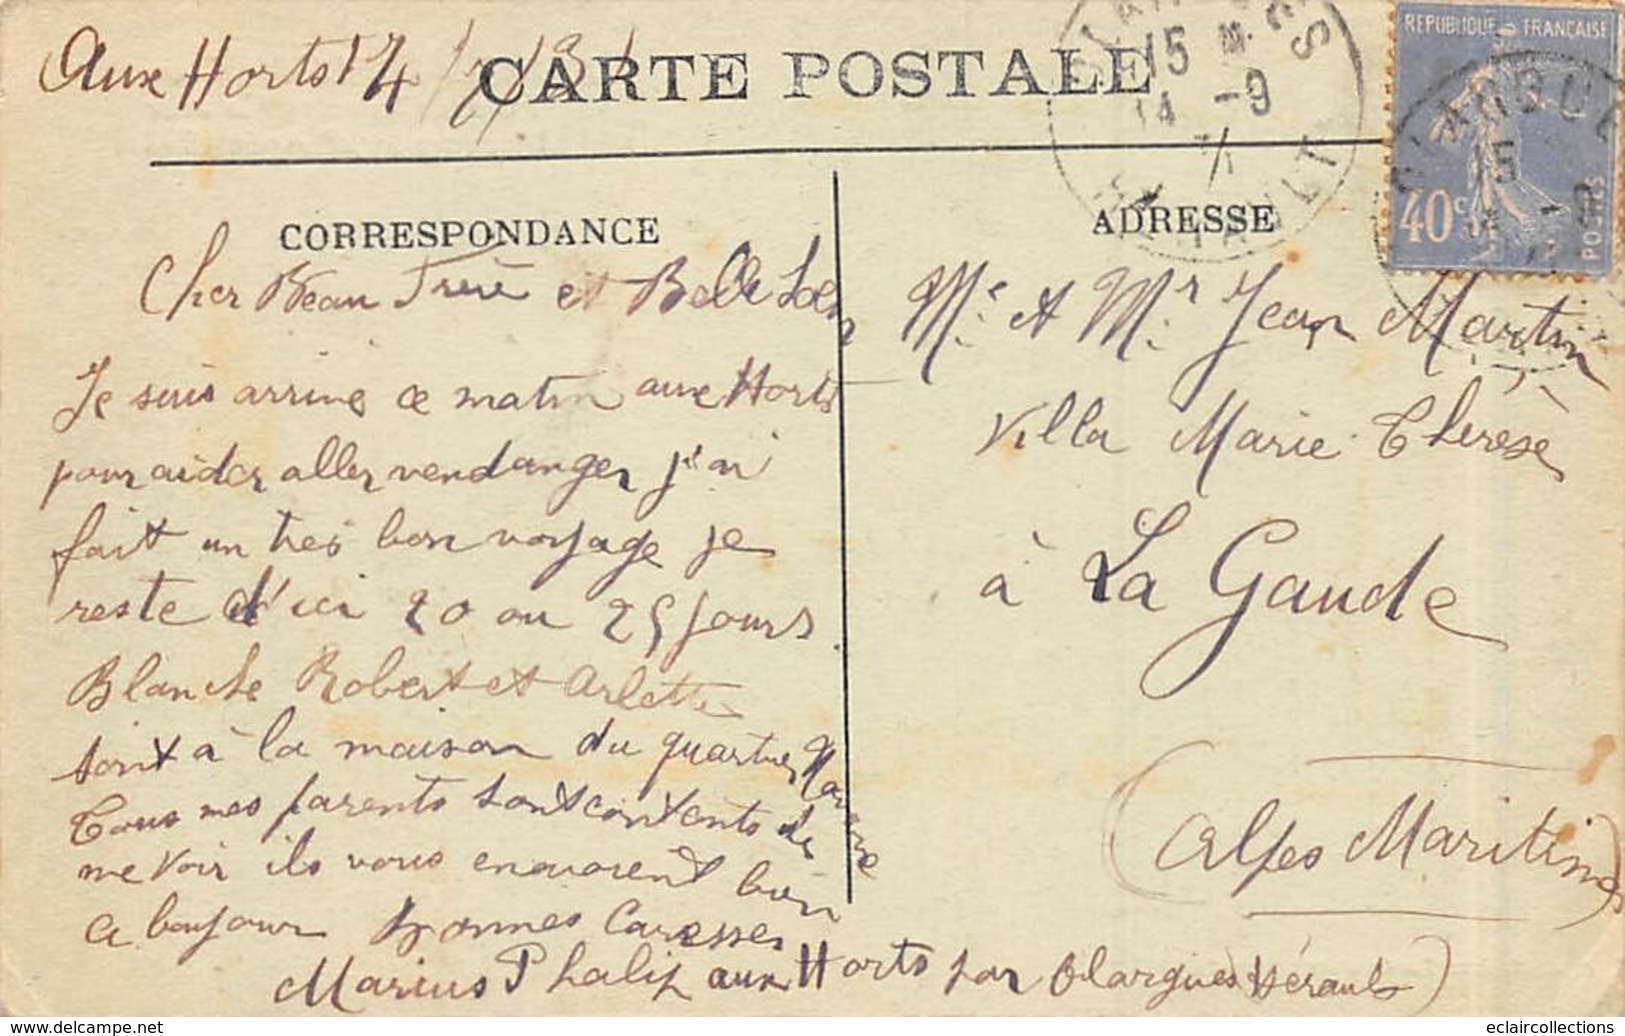 Aux Horts 14
CARTE POSTALE
15
14 -9
REPUBLIQUE FRANÇAISE
40c
POSTES
CORRESPONDANCE
Cher Beau Frère et Belle Soeur
Je suis arrive ce matin aux Horts
pour aider aller vendanger j'ai
fait un tres bon voyage je
reste d'ici 20 ou 25 jours
Blanche Robert et Arlette
sont à la maison du quartier
Tous mes parents sont contents de
me voir ils vous envoient bien
a bonjour Bonnes Caresses
Marius Phalip aux Horts par Olargues Hérault)
ADRESSE
Me et Mr Jean Martin
Villa Marie Thérèse
à La Gaude
(Alpes Maritimes)
eclaircollections